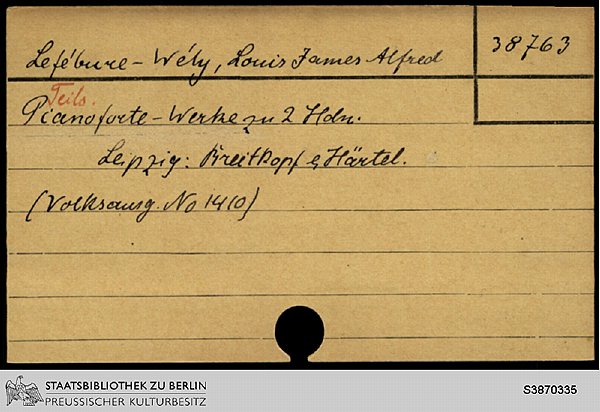 Lefébure-Wély, Louis James Alfred
38763
Teils.
Pianoforte-Werke zu 2 Hdn.
Leipzig: Breitkopf & Härtel.
(Volksausg. No 1410)
STAATSBIBLIOTHEK ZU BERLIN
PREUSSISCHER KULTURBESITZ
S3870335